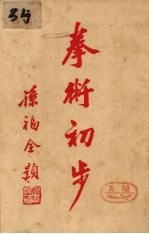 拳術初步
孫福全題
34